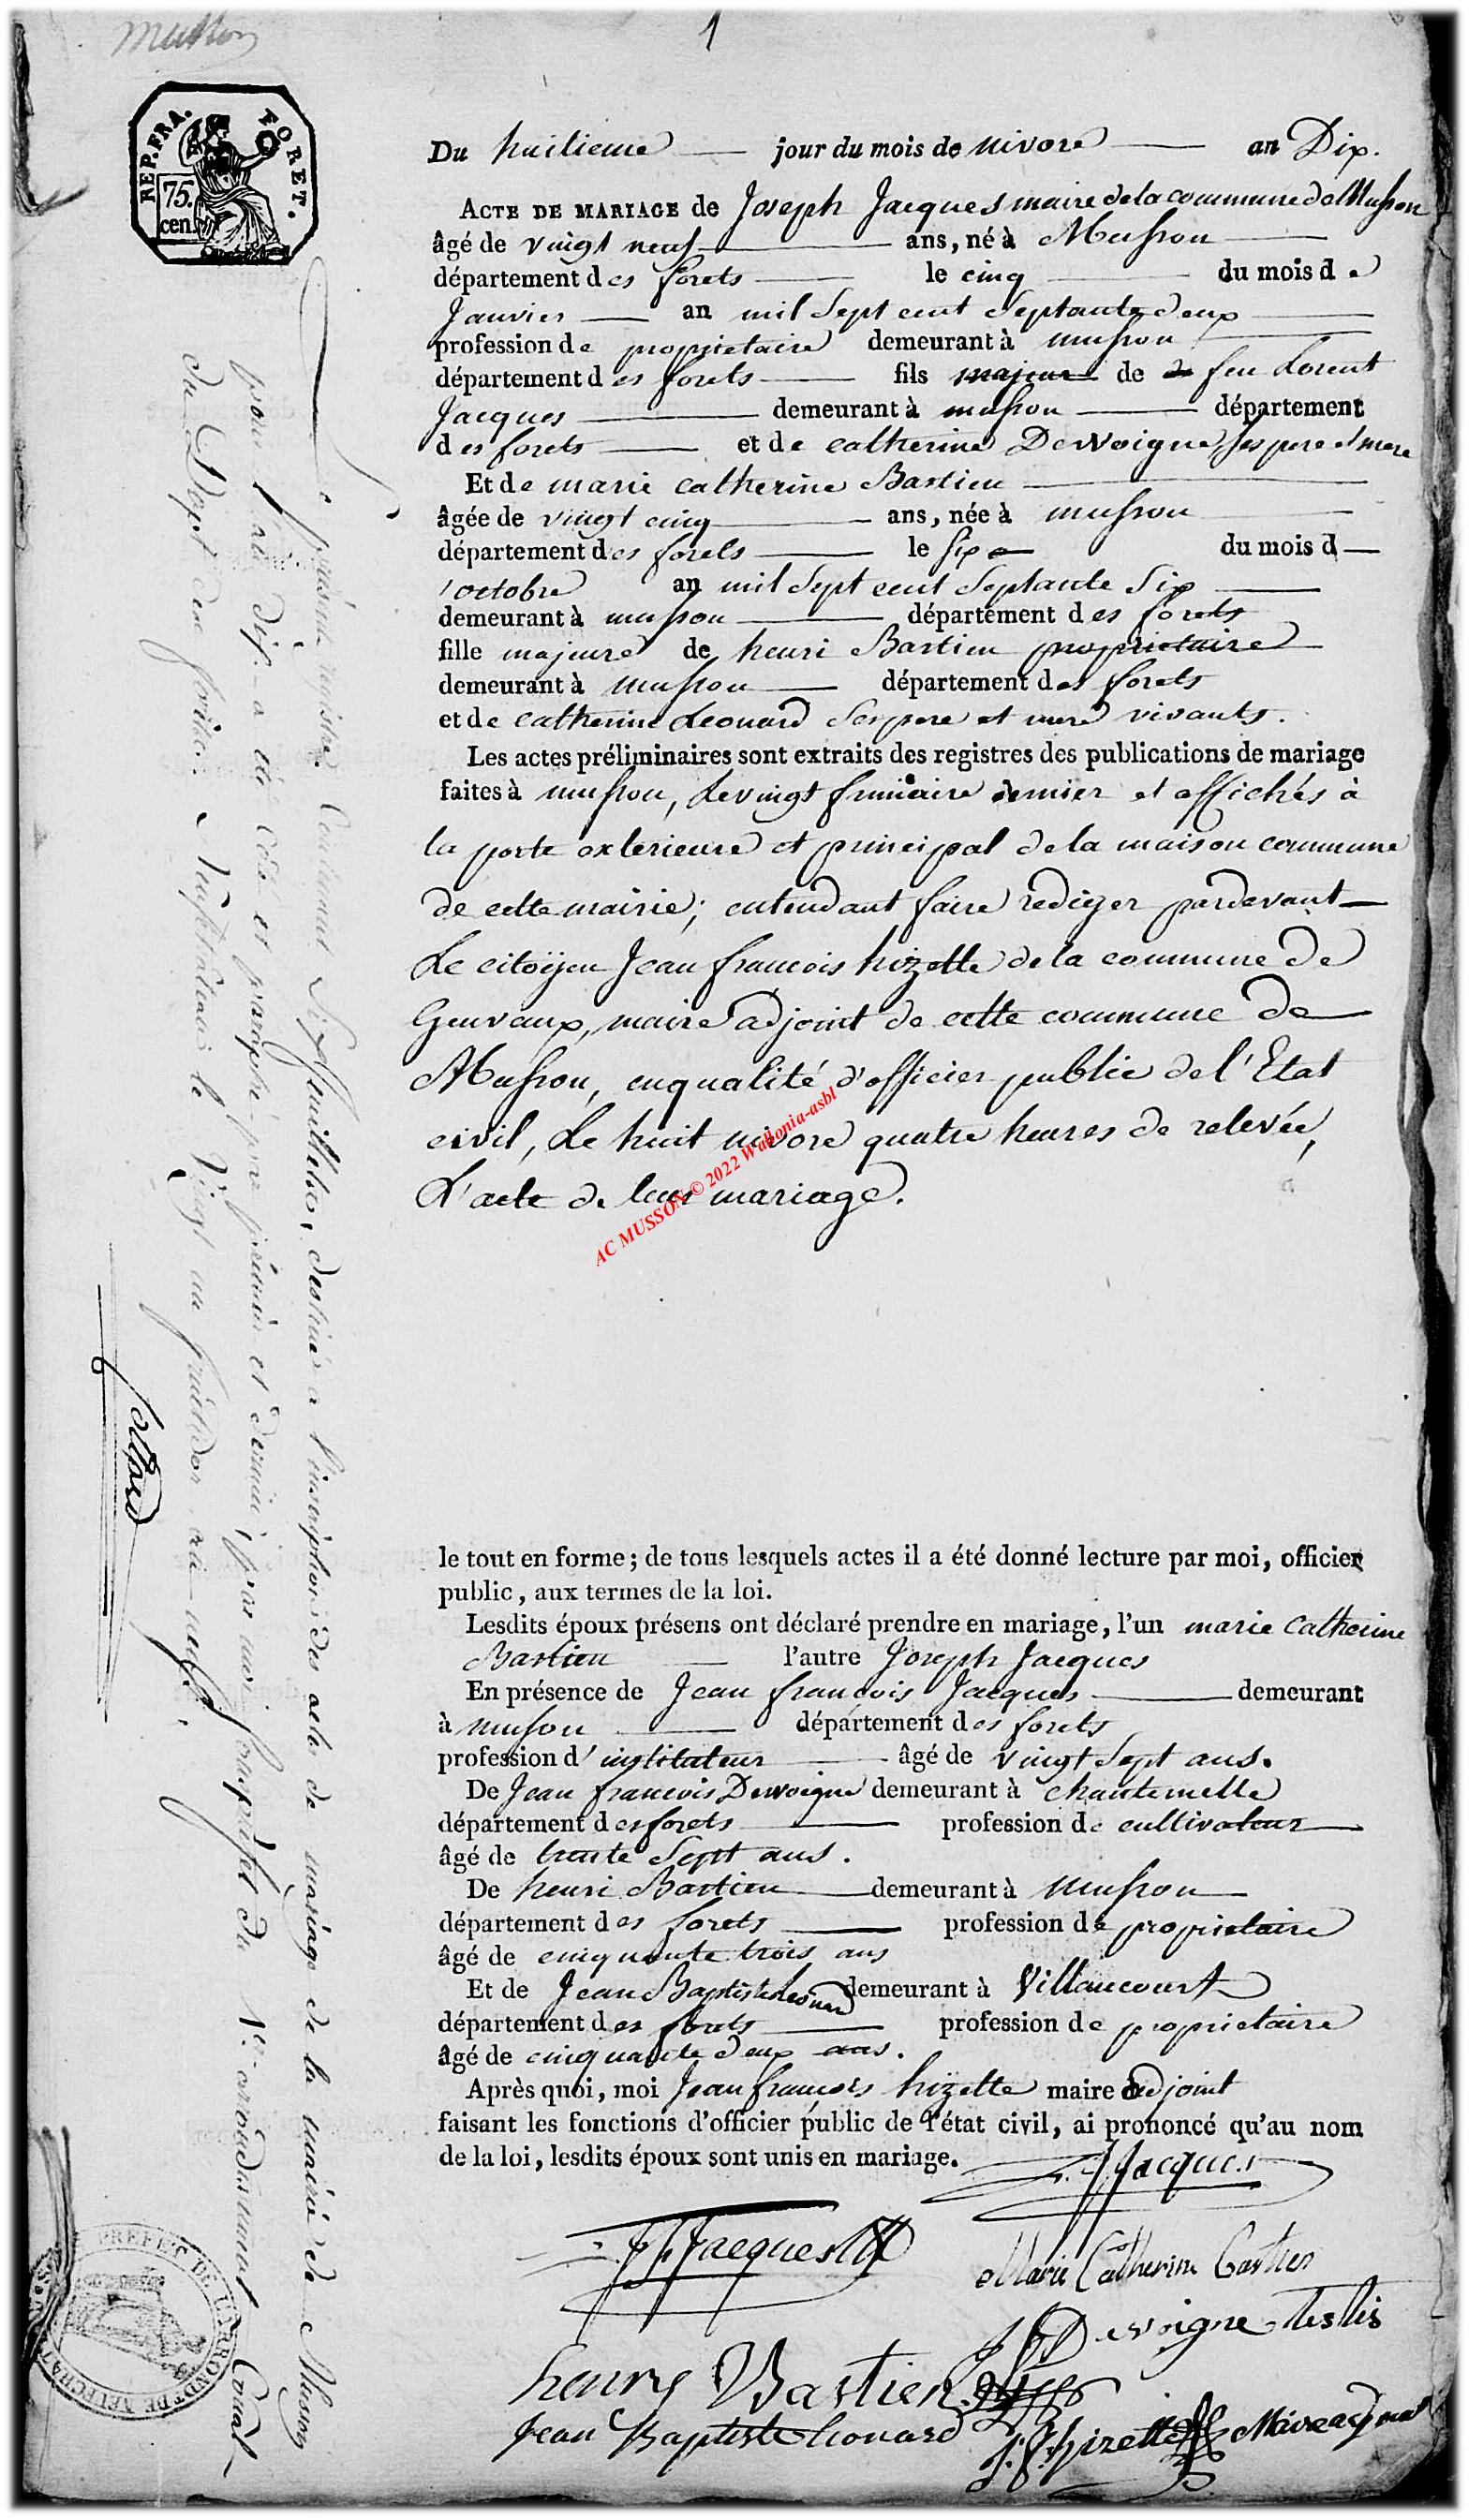 Musson
1
REP. FRA. FORET.
75.
cen.
Du huitieme jour du mois de nivore an Dix.
ACTE DE MARIAGE de Joseph Jacques maire de la commune de Musson
âgé de vingt neuf ans, né à Musson
département des forets le cinq du mois de
Janvier an mil Sept cent Septante deux
profession de proprietaire demeurant à musson
département des forets fils majeur de feu Lorent
Jacques demeurant à musson département
des forets et de catherine Dewoigne, ses pere et mere
Et de marie catherine Bastien
âgée de vingt cinq ans, née à musson
département des forets le six du mois d
'octobre an mil Sept cent Septante Six
demeurant à musson département des forets
fille majeure de henri Bastien proprietaire
demeurant à musson département des forets
et de catherine Leonard Ses pere et mere vivants.
Les actes préliminaires sont extraits des registres des publications de mariage
faites à musson, le vingt frimaire dernier et affichés à
la porte exterieure et principal de la maison commune
de cette mairie; entendant faire rediger pardevant
Le citoÿen Jean francois hizette de la commune de
Genvaux, maire adjoint de cette commune de
Musson, en qualité d'officier public de l'Etat
civil, Le huit nivore quatre heures de relevée,
L'acte de leur mariage.
AC MUSSON © 2022 Wallonia-asbl
le tout en forme; de tous lesquels actes il a été donné lecture par moi, officier
public, aux termes de la loi.
Lesdits époux présens ont déclaré prendre en mariage, l'un marie Catherine
Bastien l'autre Joseph Jacques
En présence de Jean francois Jacques demeurant
à musson département des forets
profession d'institateur âgé de vingt Sept ans.
De Jean francois Dewoigne demeurant à chantemelle
département des forets profession de cultivateur
âgé de trente Sept ans.
De henri Bastien demeurant à Musson
département des forets profession de proprietaire
âgé de cinquante trois ans
Et de Jean Baptiste Leonard demeurant à Villancourt
département des forets profession de proprietaire
âgé de cinquante deux ans.
Après quoi, moi Jean françois hizette maire adjoint
faisant les fonctions d'officier public de l'état civil, ai prononcé qu'au nom
de la loi, lesdits époux sont unis en mariage.
J. Jacques
J f Jacques
Marie Catherine Bastien
J f Dewoigne testis
henry Bastien
Jean Baptiste Leonard
J. f. hizette Maire adjoint
Le présent registre Contenant Six feuillets, destiné a l'inscription des actes de mariage de la mairie de Musson
pour l'an dix a été Coté et paraphé par premier et dernier, par moi Souspréfet du 1er. arrondissement Comal
du Dept. des forêts. A Neufchateau le Vingt un fructidor an neuf.
Collard
PREFET DE L'ARRONDT DE NEUFCHAT